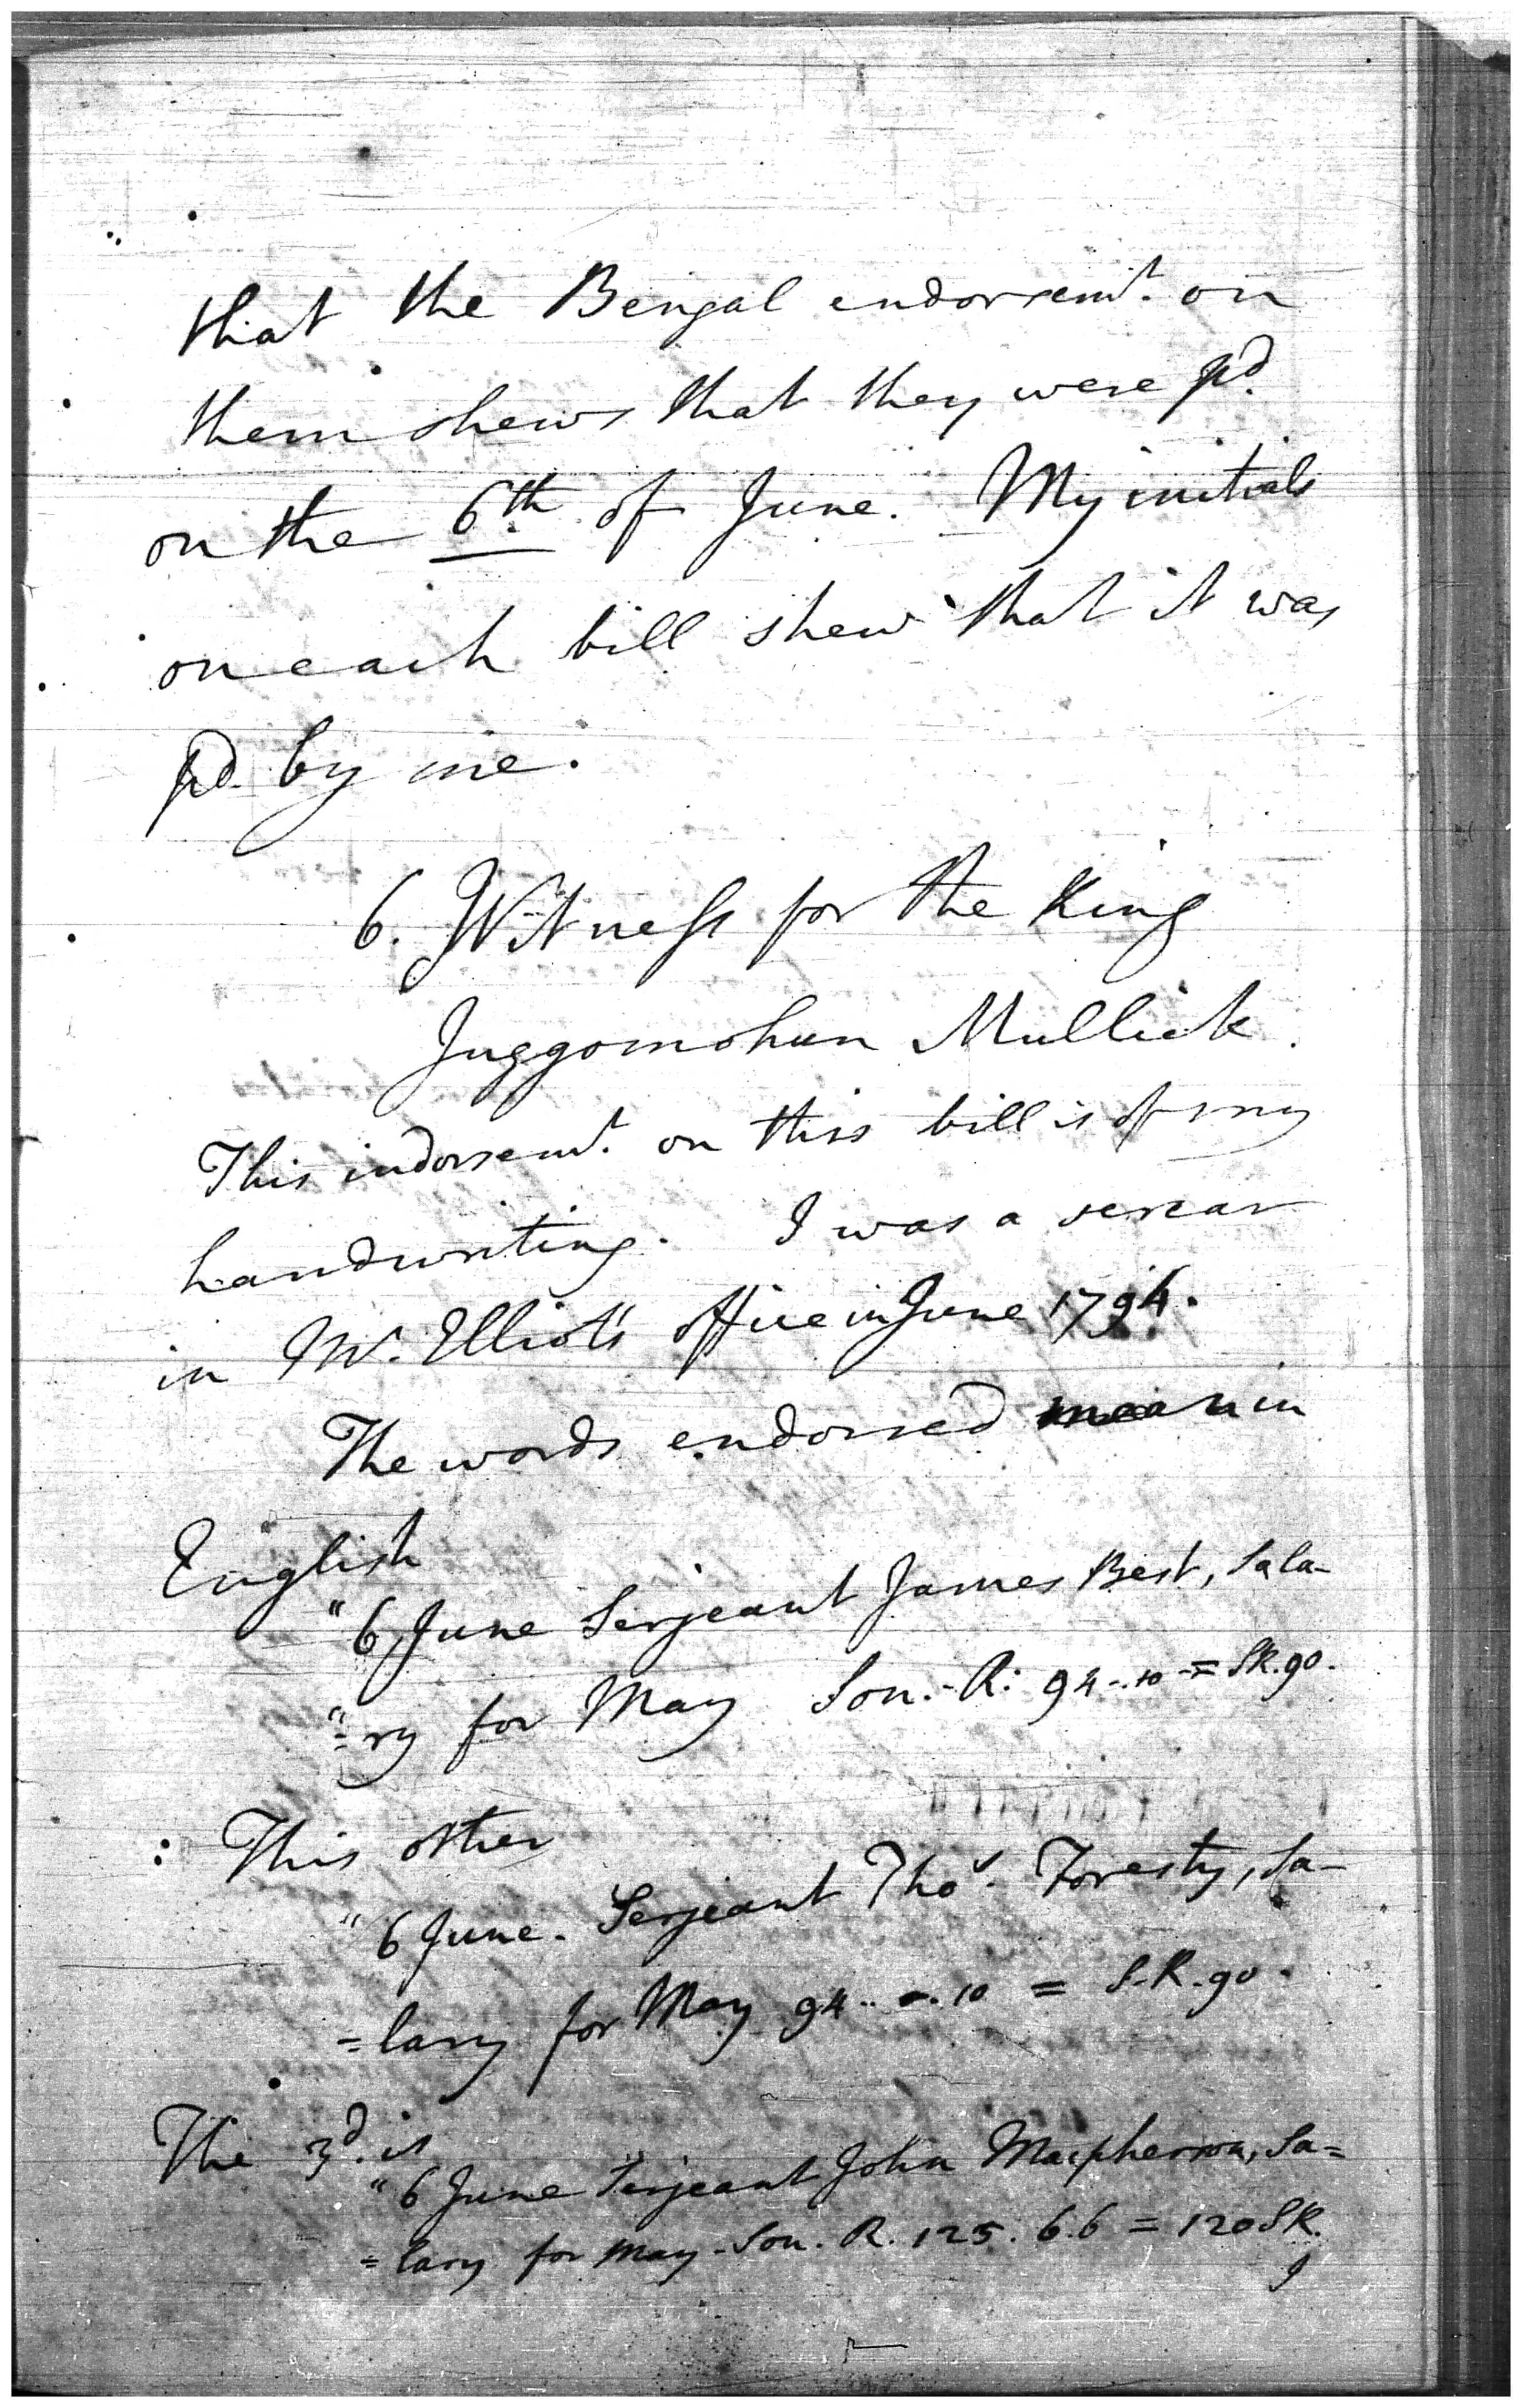 that the Bengal endorsemt. on
them shews that they were pd.
on the 6th. of June. My initials
on each bill shew that it was
pd. by me.
6. Witness for the King
Juggomohun Mullick.
This indorsemt. on this bill is of my
handwriting. I was a sercar
in Mr. Elliot's office in June 1794.
The words endorsed mean in
English
"6 June Serjeant James Best, Sala-
"=ry for May Son.-R: 94-.10-=SR.90.
This other
"6 June. Serjeant Thos. Foresty, Sa-
=lary for May 94..-.10 = S.R.90.
The 3d. is
"6 June Serjeant John Macpherson, Sa=
=lary for May-Son. R. 125. 6.6 = 120 SR.